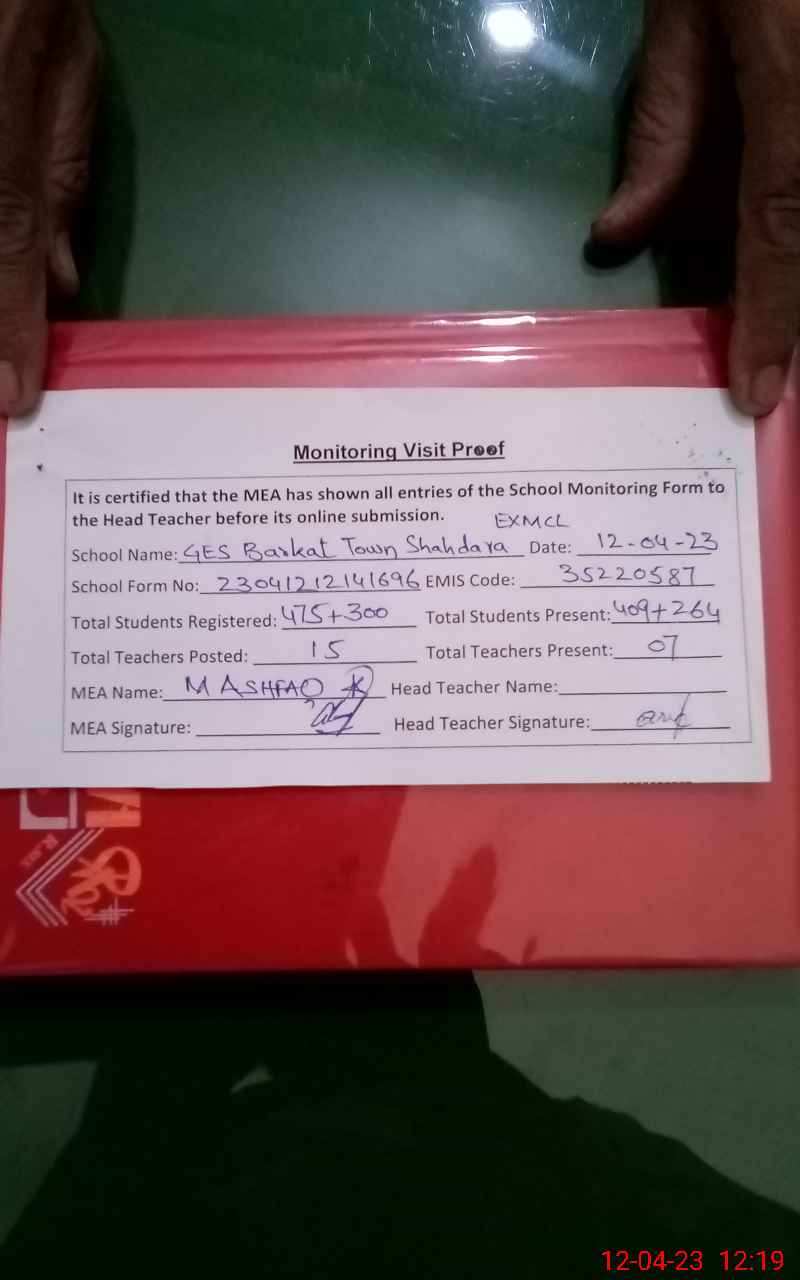 Monitoring Visit Proof
It is certified that the MEA has shown all entries of the School Monitoring Form to
the Head Teacher before its online submission.
EXMCL
School Name: GES Barkat Town Shahdara Date: 12-04-23
School Form No: 23041212141696 EMIS Code: 35220587
Total Students Registered: 475+300 Total Students Present: 409+264
Total Teachers Posted: 15 Total Teachers Present: 07
MEA Name: M ASHFAQ Head Teacher Name:
MEA Signature: Head Teacher Signature:
12-04-23 12:19